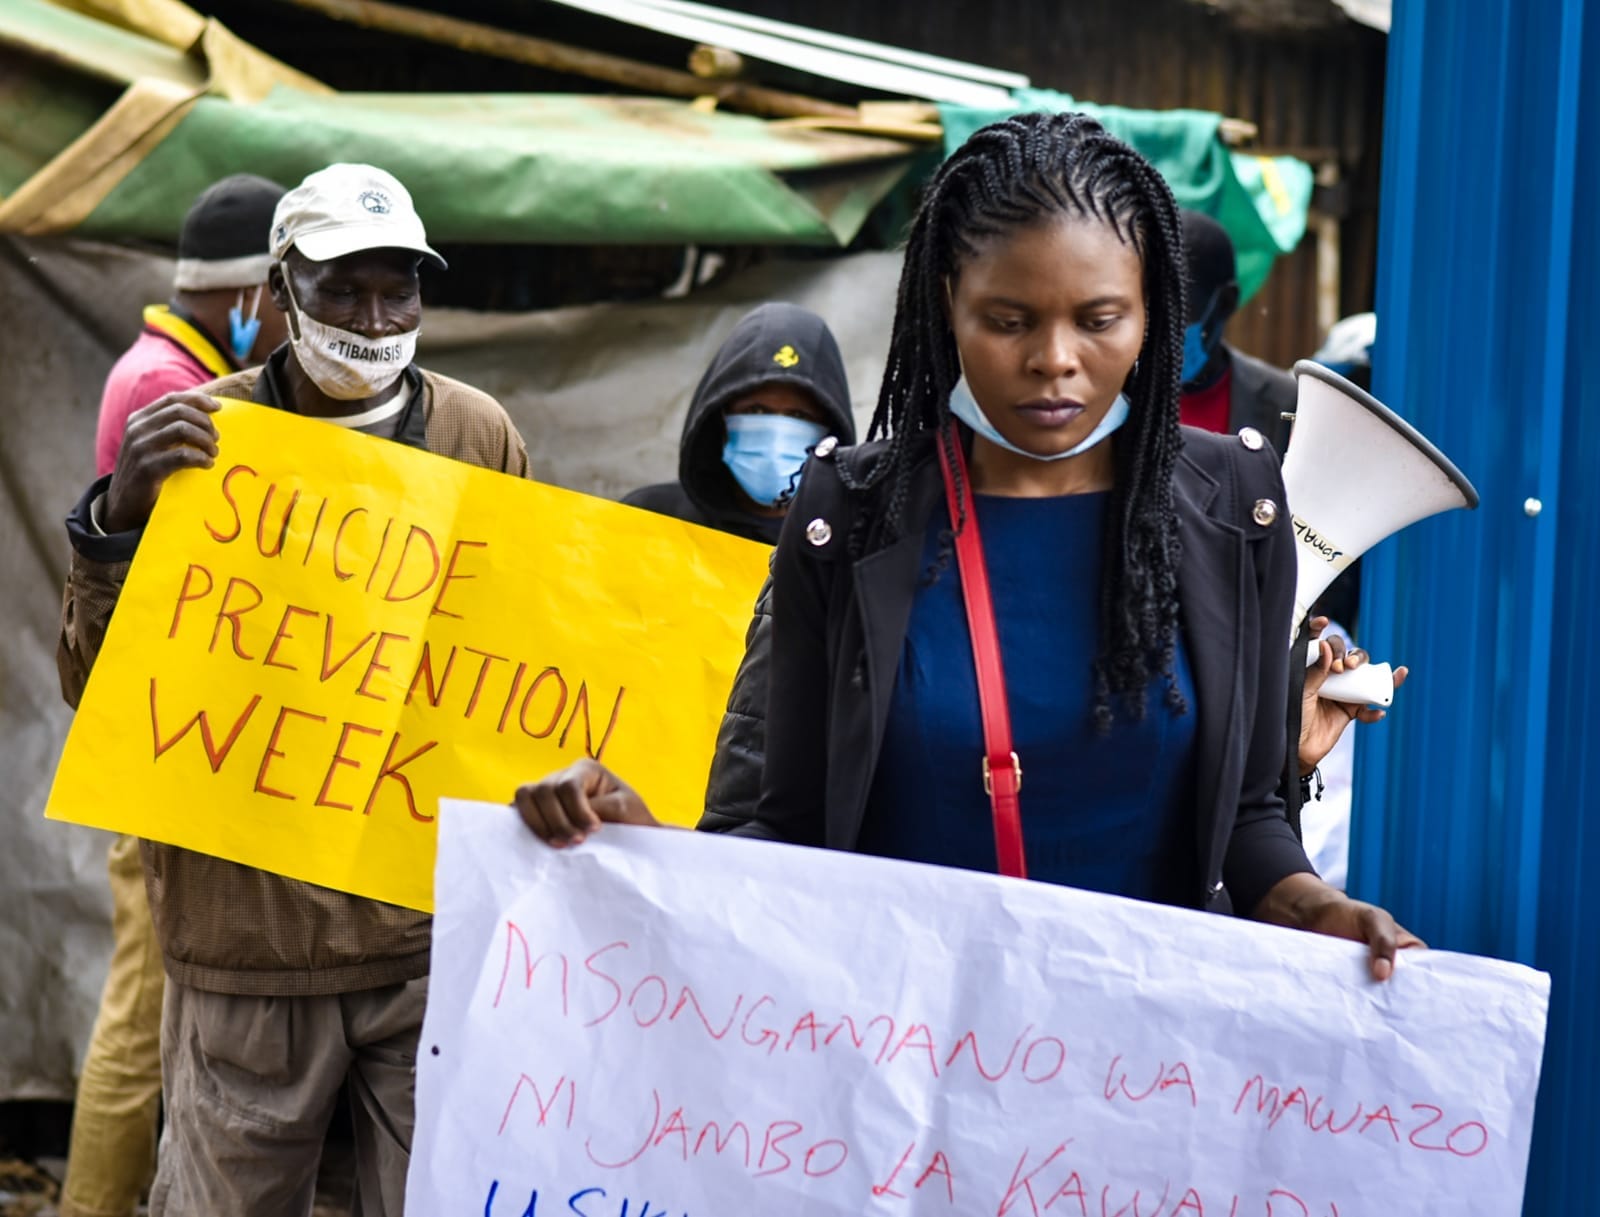 #TIBANISISI
SUICIDE
PREVENTION
WEEK
MSONGAMANO WA MAWAZO
NI JAMBO LA